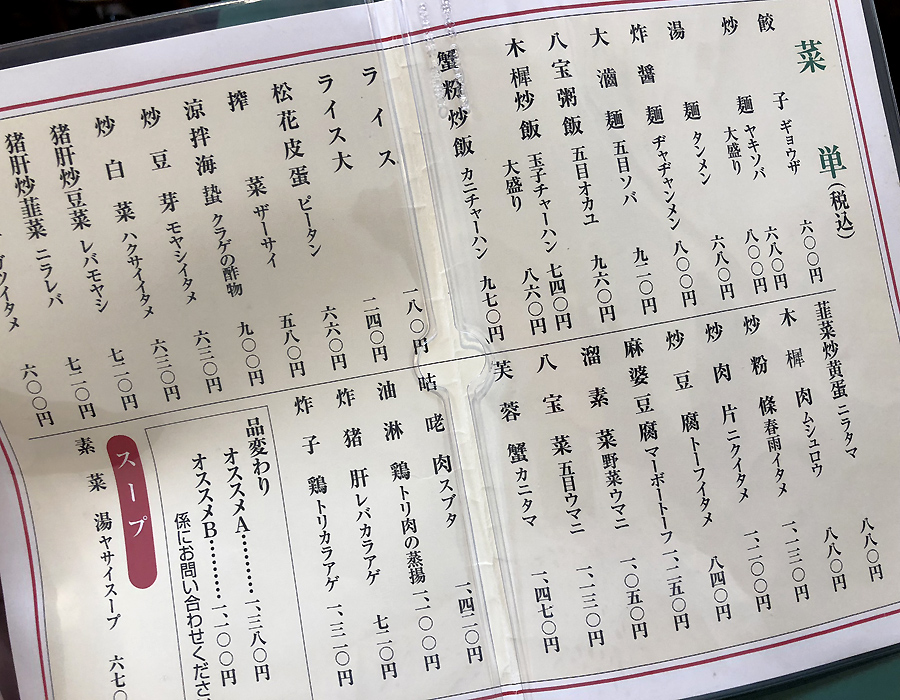 菜単(税込)
餃子 ギョウザ 六〇〇円
炒麺 ヤキソバ 六八〇円
大盛り 八〇〇円
湯麺 タンメン 六八〇円
炸醤麺 ヂャヂャンメン 八〇〇円
大滷麺 五目ソバ 九二〇円
八宝粥飯 五目オカユ 九六〇円
木樨炒飯 玉子チャーハン 七四〇円
大盛り 八六〇円
蟹粉炒飯 カニチャーハン 九七〇円
ライス 一八〇円
ライス大 二四〇円
松花皮蛋 ピータン 六六〇円
搾菜 ザーサイ 五八〇円
涼拌海蟄 クラゲの酢物 九〇〇円
炒豆芽 モヤシイタメ 六三〇円
炒白菜 ハクサイイタメ 六三〇円
猪肝炒豆菜 レバモヤシ 七二〇円
猪肝炒韮菜 ニラレバ 七二〇円
ガツイタメ 六〇〇円
韮菜炒黄蛋 ニラタマ 八八〇円
木樨肉 ムシュロウ 八八〇円
炒粉條 春雨イタメ 一、一三〇円
炒肉片 ニクイタメ 一、二〇〇円
炒豆腐 トーフイタメ 八四〇円
麻婆豆腐 マーボートーフ 一、二五〇円
溜素菜 野菜ウマニ 一、〇五〇円
八宝菜 五目ウマニ 一、一三〇円
芙蓉蟹 カニタマ 一、四七〇円
咕咾肉 スブタ 一、四二〇円
油淋鶏 トリ肉の蒸揚 一、二〇〇円
炸猪肝 レバカラアゲ 七二〇円
炸子鶏 トリカラアゲ 一、三二〇円
品変わり
オススメA………一、三八〇円
オススメB………一、二〇〇円
係にお問い合わせくださ
スープ
素菜湯 ヤサイスープ 六七〇